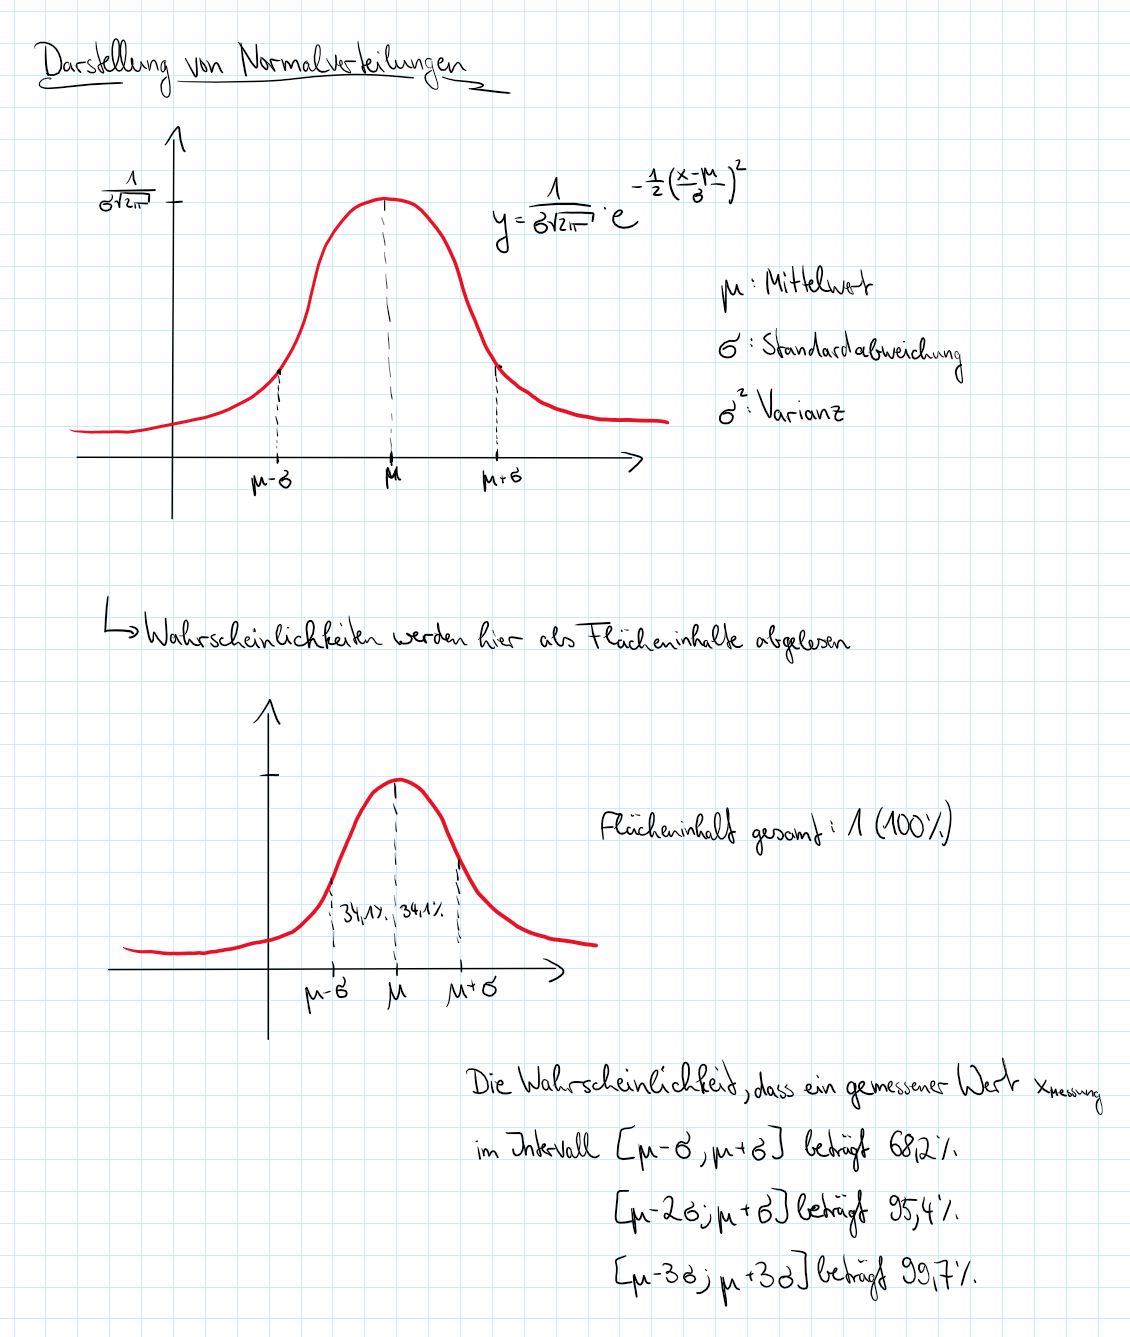 Darstellung von Normalverteilungen
1/(σ√2π)
y = 1/(σ√2π) · e^(-1/2((x-μ)/σ)²)
μ: Mittelwert
σ: Standardabweichung
σ²: Varianz
μ-σ μ μ+σ
↳ Wahrscheinlichkeiten werden hier als Flächeninhalte abgelesen
Flächeninhalt gesamt: 1 (100%)
34,1% 34,1%
μ-σ μ μ+σ
Die Wahrscheinlichkeit, dass ein gemessener Wert x_Messung
im Intervall [μ-σ, μ+σ] beträgt 68,2%.
[μ-2σ; μ+σ] beträgt 95,4%.
[μ-3σ; μ+3σ] beträgt 99,7%.